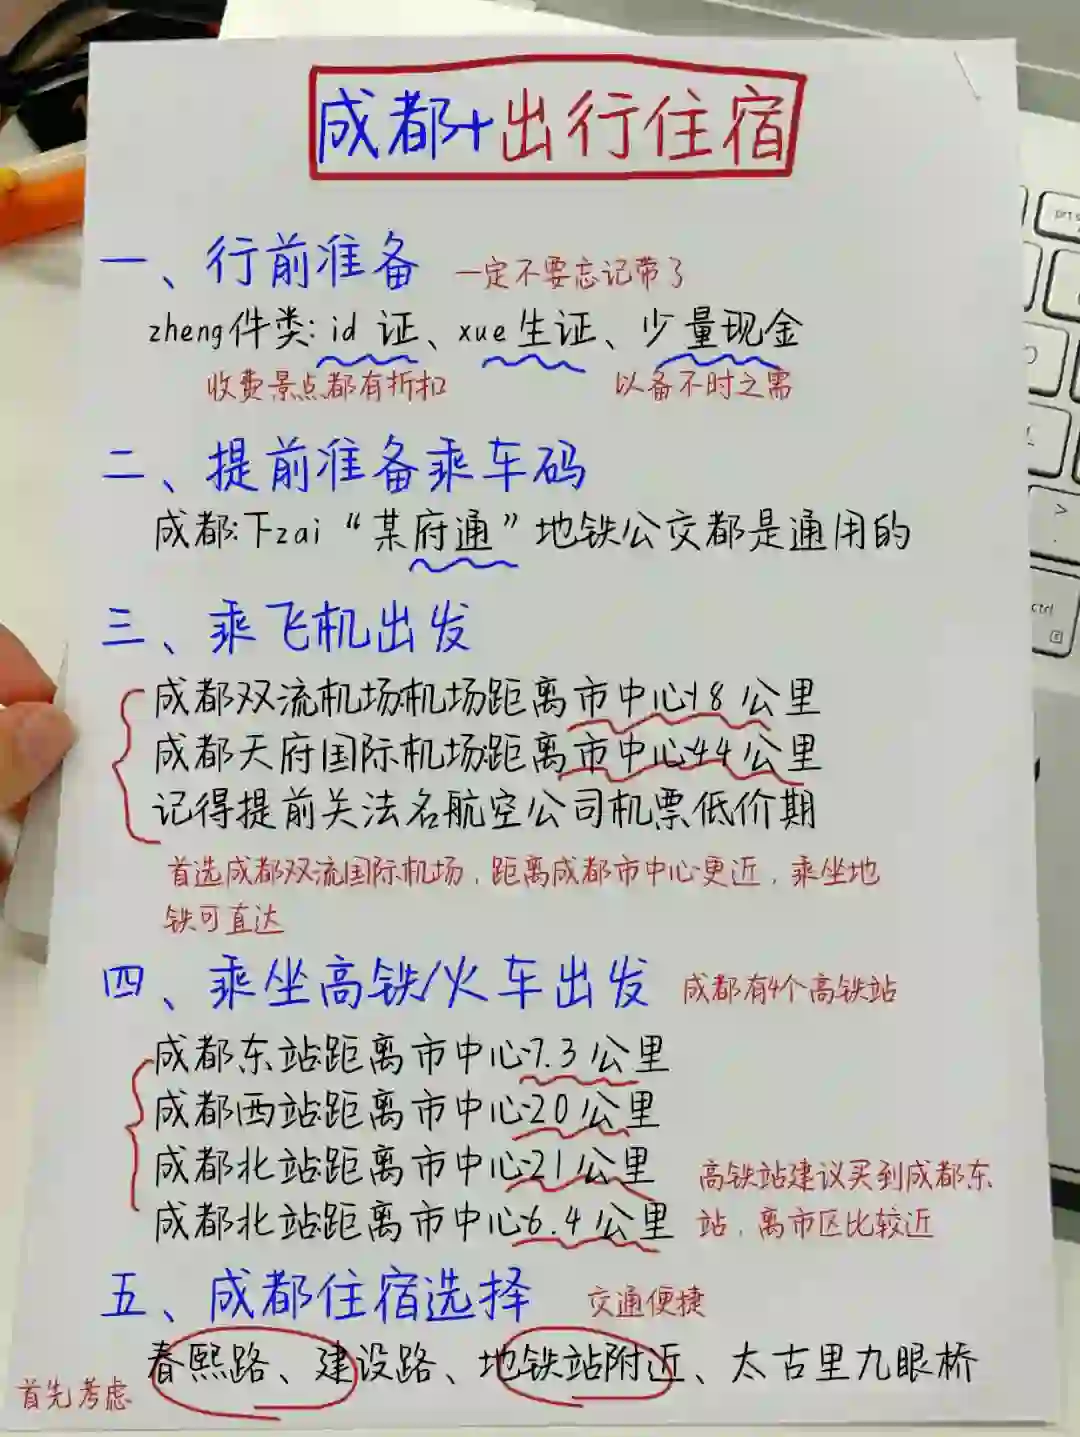 成都+出行住宿
一、行前准备 一定不要忘记带了
zheng件类: id 证、xue生证、少量现金
收费景点都有折扣 以备不时之需
二、提前准备乘车码
成都:下zai“某府通”地铁公交都是通用的
三、乘飞机出发
成都双流机场:机场距离市中心18公里
成都天府国际机场:距离市中心44公里
记得提前关法名航空公司机票低价期
首选成都双流国际机场,距离成都市中心更近,乘坐地
铁可直达
四、乘坐高铁/火车出发 成都有4个高铁站
成都东站距离市中心7.3公里
成都西站距离市中心20公里
成都北站距离市中心21公里
成都北站距离市中心6.4公里
高铁站建议买到成都东
站,离市区比较近
五、成都住宿选择 交通便捷
春熙路、建设路、地铁站附近、太古里九眼桥
首先考虑
prt s
ctrl